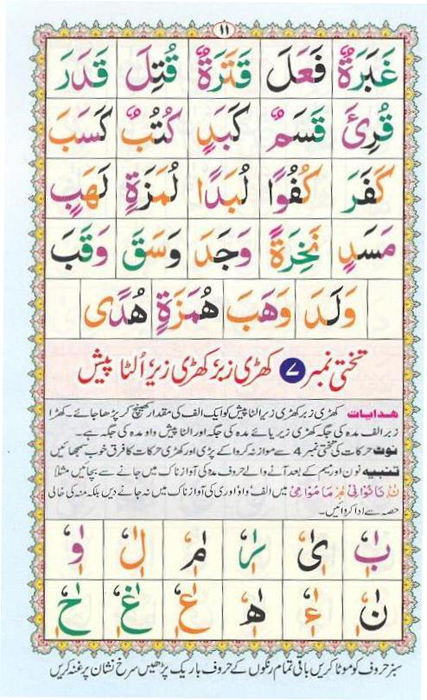 ١١
غَبَرَةٌ فَعَلَ قَتَرَةٌ قُتِلَ قَدَرَ
قُرِئَ قَسَمٌ كَبَدٍ كُتُبٌ كَسَبَ
كَفَرَ كُفُوًا لُبَدًا لُمَزَةٍ لَهَبٍ
مَسَدٍ نَخِرَةً وَجَدَ وَسَقَ وَقَبَ
وَلَدَ وَهَبَ هُمَزَةٍ هُدًى
تختی نمبر ۷ کھڑی زبر کھڑی زیر اُلٹا پیش
ہدایات کھڑی زبر کھڑی زیر الٹا پیش کو ایک الف کی مقدار کھینچ کر پڑھا جائے۔ کھڑا
زبر الف مدہ کی جگہ کھڑی زیر یائے مدہ کی جگہ اور الٹا پیش واو مدہ کی جگہ ہے۔
نوٹ حرکات کی تختی نمبر 4 سے موازنہ کروا کے پڑی اور کھڑی حرکات کا فرق خوب سمجھائیں
تنبیہ نون اور میم کے بعد آنے والے حروف مدہ کی آواز ناک میں جانے سے بچائیں مثلاً
میں الف واؤ اور ی کی آواز ناک میں نہ جانے دیں بلکہ منہ کی خالی
حصہ سے ادا کروائیں۔
بٰ یٰ رٰ مٰ لٰ وٰ
نٰ ءٰ هٰ عٰ غٰ حٰ
سبز حروف کو موٹا کریں باقی تمام رنگوں کے حروف باریک پڑھیں سرخ نشان پر غنہ کریں